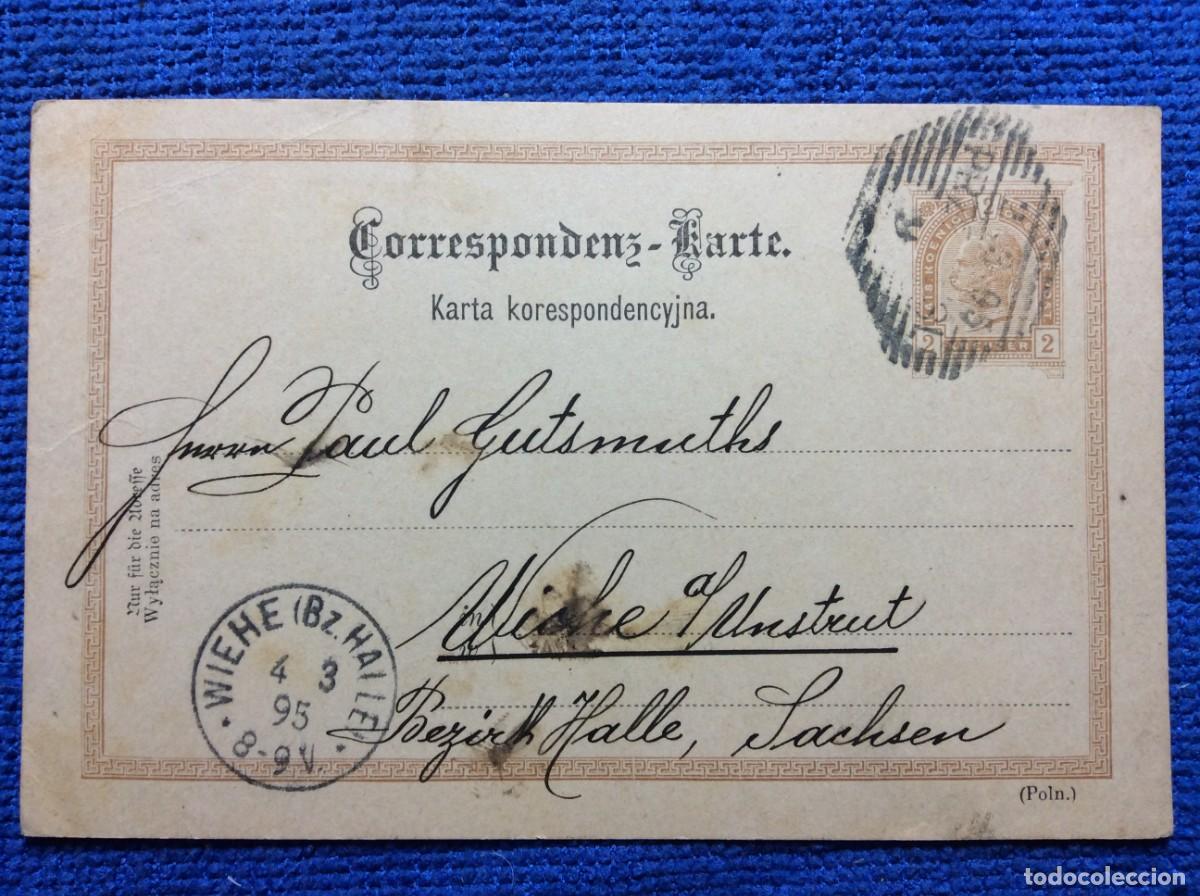 Correspondenz-Karte.
Karta korespondencyjna.
2 2
Herrn Paul Gutsmuths
Nur für die Adresse
Wyłącznie na adres
in Wiehe a/Unstrut
Bezirk Halle, Sachsen
WIEHE (BZ. HALLE)
4 3
95
8-9 V.
(Poln.)
todocoleccion